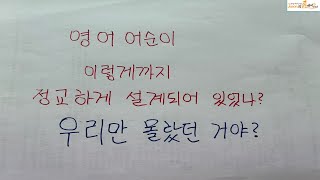 영어 어순이
이렇게까지
정교하게 설계되어 있었나?
우리만 몰랐던 거야?